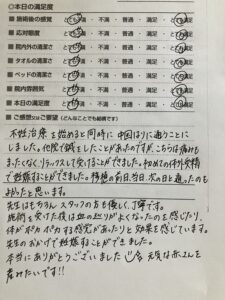 ◎本日の満足度
■ 施術後の感覚 とても不満 ・ 不満 ・ 普通 ・ 満足 ・ とても満足
■ 応対態度 とても不満 ・ 不満 ・ 普通 ・ 満足 ・ とても満足
■ 院内外の清潔さ とても不満 ・ 不満 ・ 普通 ・ 満足 ・ とても満足
■ タオルの清潔さ とても不満 ・ 不満 ・ 普通 ・ 満足 ・ とても満足
■ ベッドの清潔さ とても不満 ・ 不満 ・ 普通 ・ 満足 ・ とても満足
■ 院内雰囲気 とても不満 ・ 不満 ・ 普通 ・ 満足 ・ とても満足
■ 本日の満足度 とても不満 ・ 不満 ・ 普通 ・ 満足 ・ とても満足
■ ご感想又はご要望(どんなことでも結構です)
不妊治療を始めると同時に中国はりに通うことに
しました。他院で鍼をしたことがあったのですが、こちらは痛みも
まったくなく、リラックスして受けることができました。初めての体外受精
で妊娠することができました。移植の前日、当日、次の日と通ったのも
よかったと思います。
先生はもちろん、スタッフの方も優しく、丁寧です。
施術を受けた後は血の巡りがよくなったのを感じたり、
体がポカポカする感覚があったりと効果を感じています。
先生のおかげで妊娠することができました。
本当にありがとうございました!!元気な赤ちゃんを
産みたいです!!